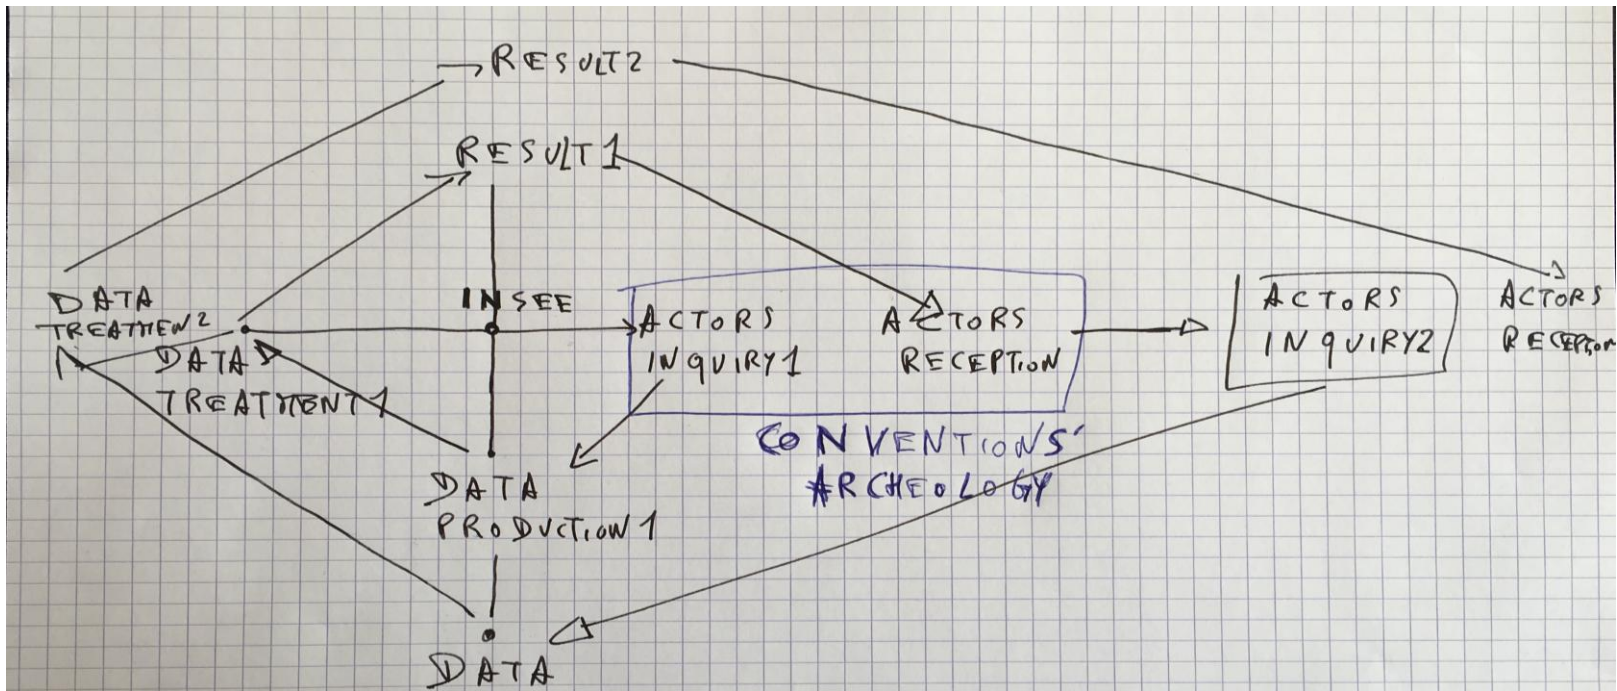 RESULT2
RESULT1
DATA
TREATMEN2
INSEE
ACTORS
INQUIRY1
ACTORS
RECEPTION
ACTORS
INQUIRY2
ACTORS
RECEPTION
DATA
TREATMENT1
CONVENTIONS'
ARCHEOLOGY
DATA
PRODUCTION1
DATA